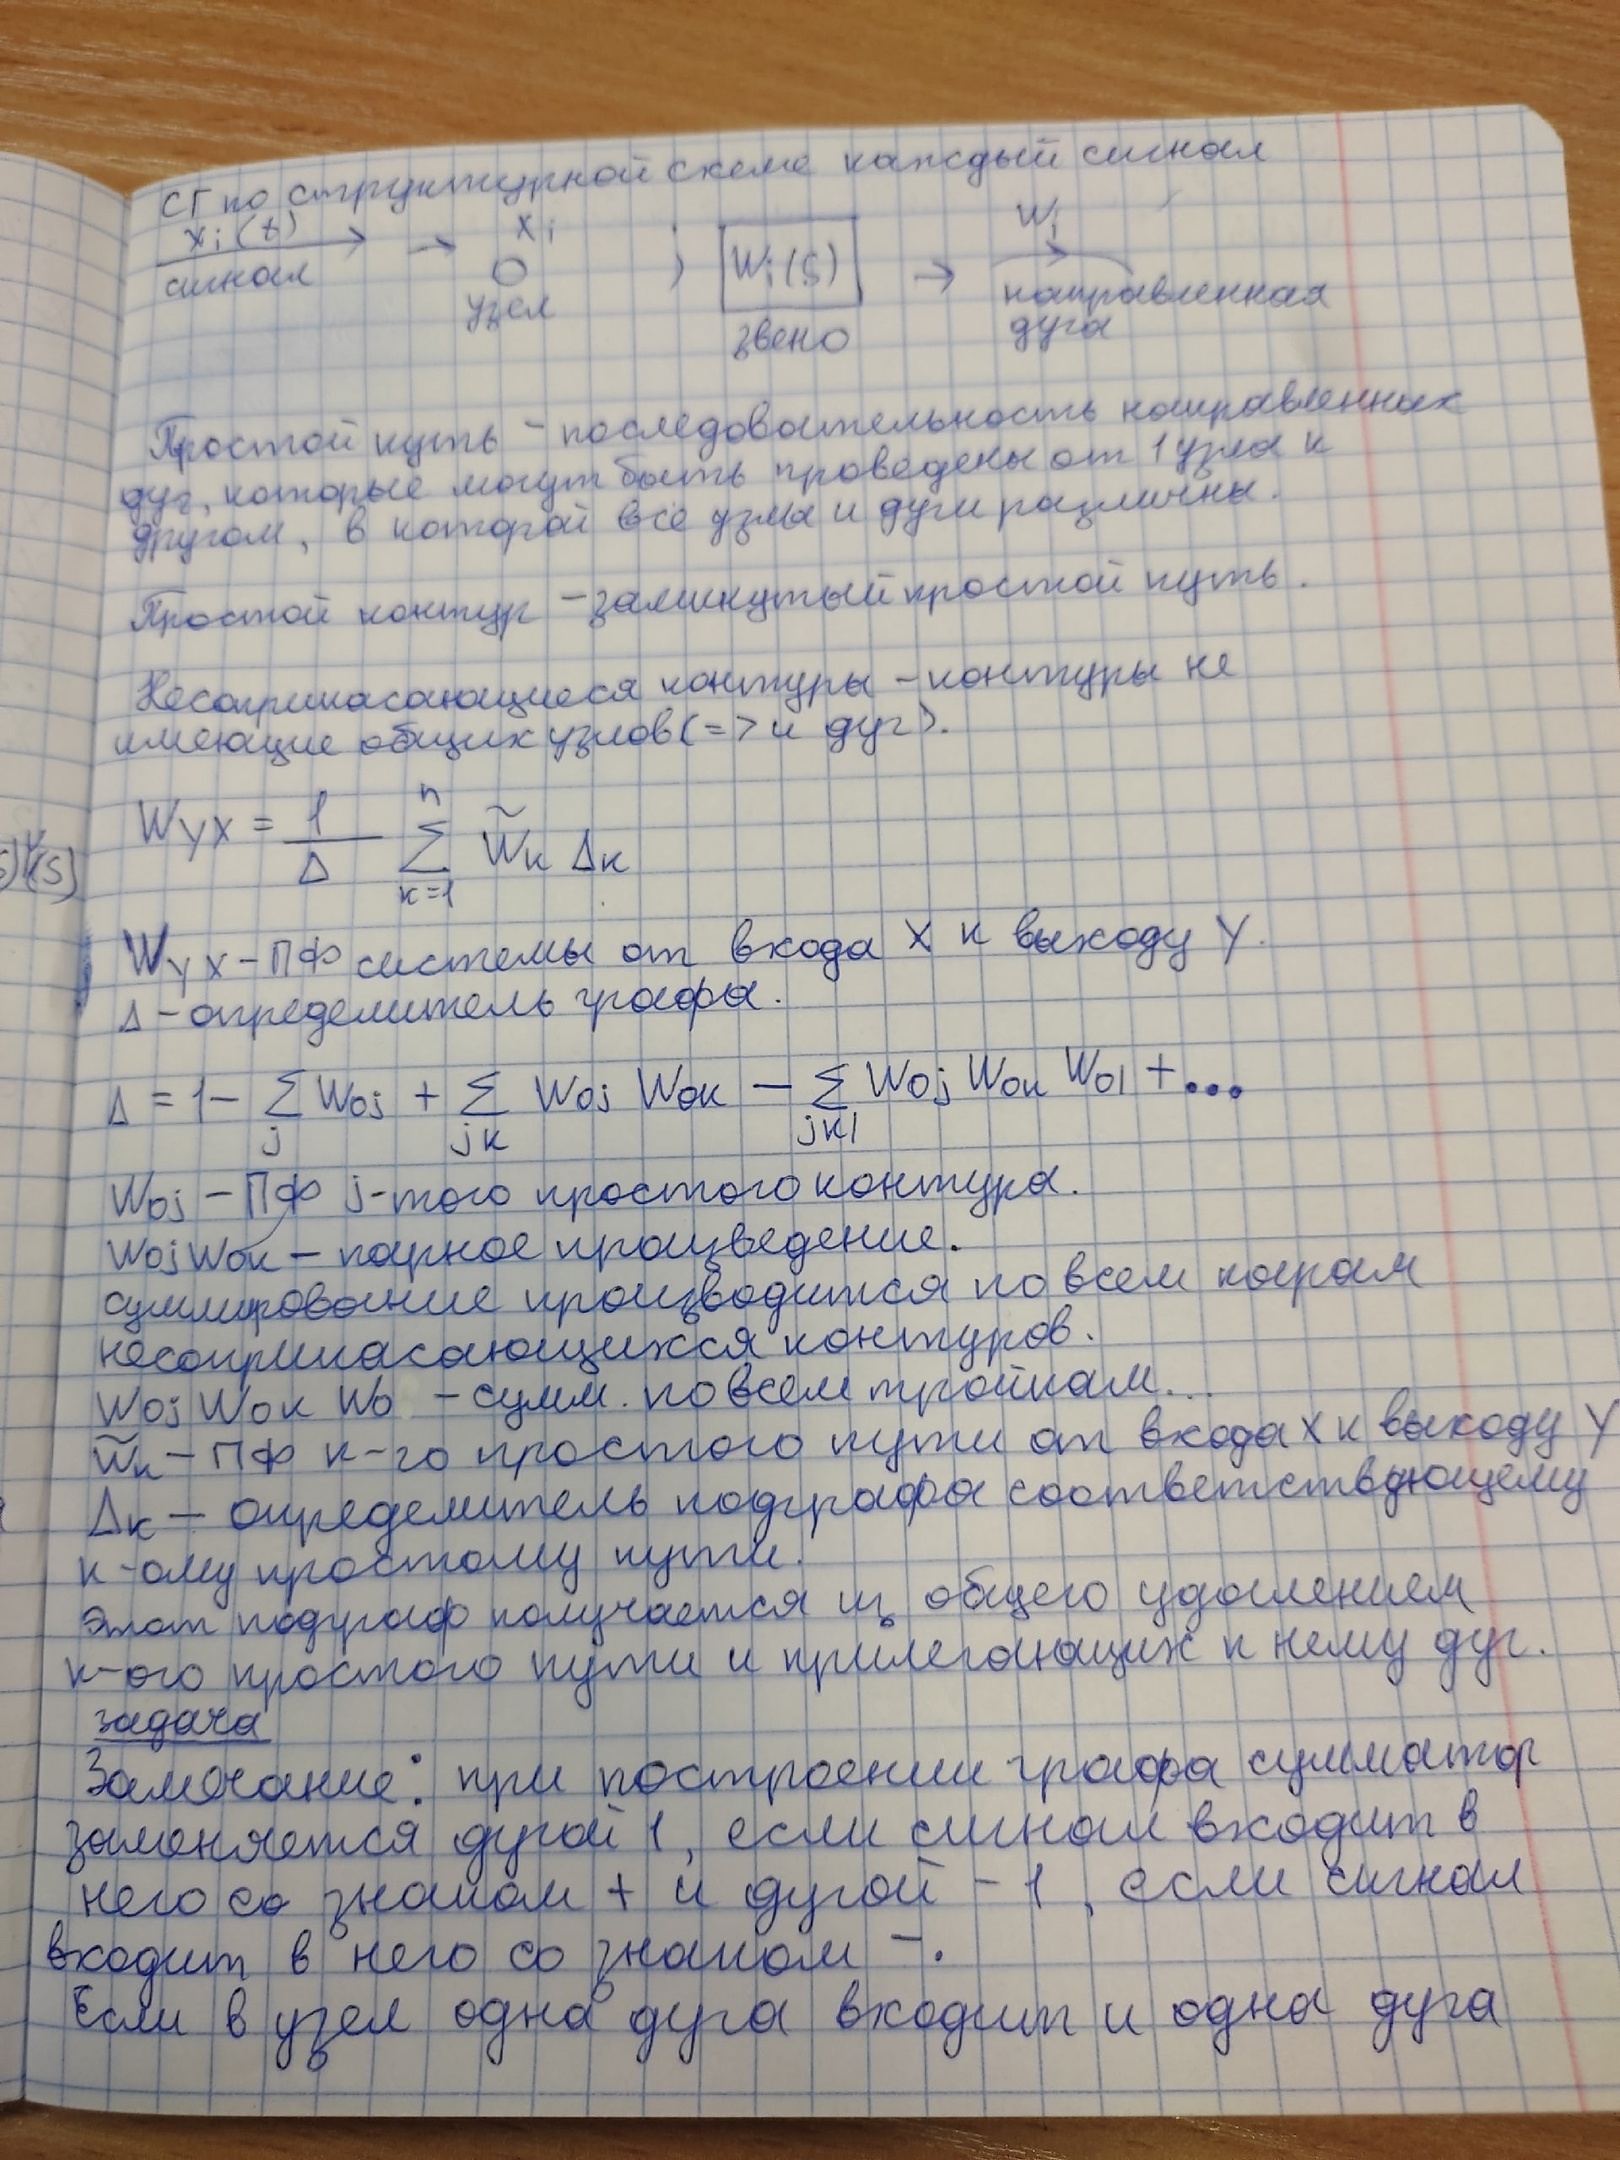 СГ по структурной схеме каждый сигнал
xi(t) → xi ; Wi(s) → Wi
сигнал узел звено направленная дуга
Простой путь – последовательность направленных
дуг, которые могут быть проведены от 1 узла к
другом, в которой все узлы и дуги различны.
Простой контур – замкнутый простой путь.
Несоприкасающиеся контуры – контуры не
имеющие общих узлов (=> и дуг).
Wyx = 1/Δ Σ(k=1..n) W̃k Δk
(s)
Wyx – ПФ системы от входа X к выходу Y.
Δ – определитель графа.
Δ = 1 - Σj Woj + Σjk Woj Wok – Σjkl Woj Wok Wol + ...
Woj – ПФ j-того простого контура.
Woj Wok – парное произведение.
суммирование производится по всем парам
несоприкасающихся контуров.
Woj Wok Wo – сумм. по всем тройкам...
W̃k – ПФ k-го простого пути от входа X к выходу Y
Δk – определитель подграфа соответствующему
к-ому простому пути.
Этот подграф получается из общего удалением
к-ого простого пути и прилегающих к нему дуг.
задача
Замечание: при построении графа сумматор
заменяется дугой 1, если сигнал входит в
него со знаком + и дугой -1, если сигнал
входит в него со знаком –.
Если в узел одна дуга входит и одна дуга